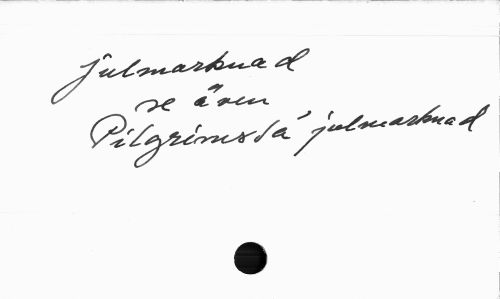 julmarknad
se även
Pilgrimstá julmarknad